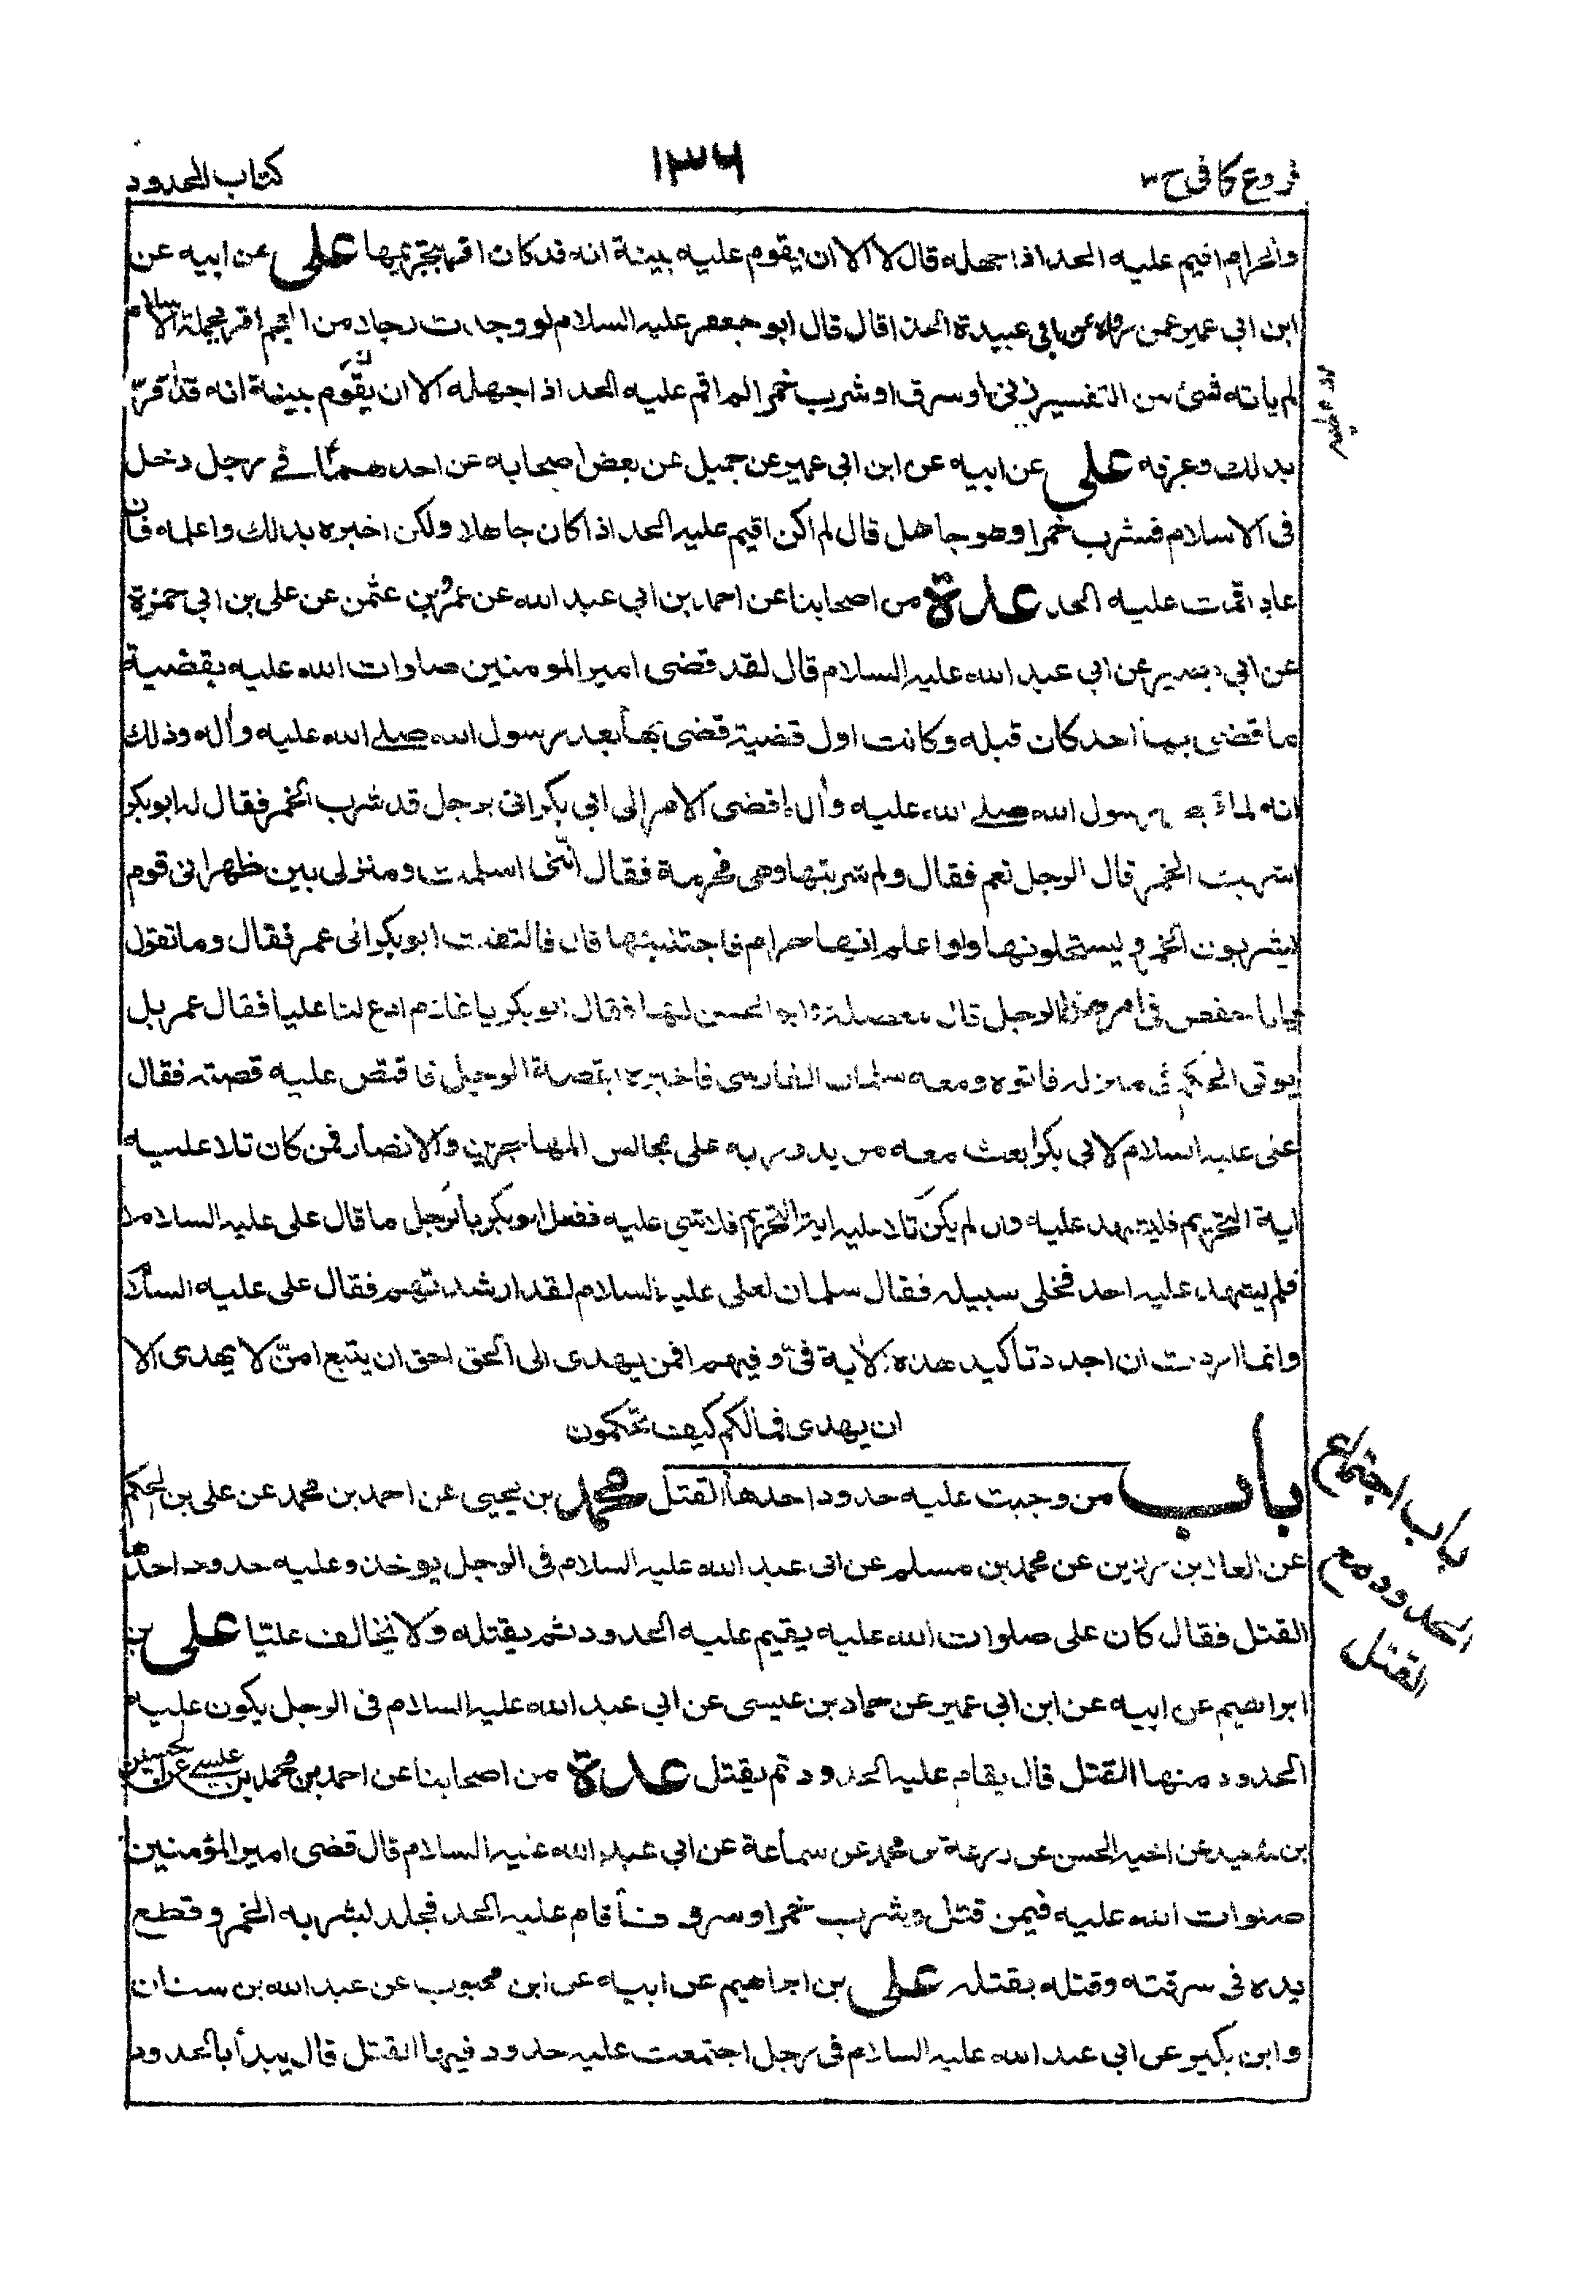 فروع كافى ج ٣
١٣٦
كتاب الحدود
والحرام اقيم عليه الحد اذا جهله قال لا الا ان يقوم عليه بينة انه قد كان اقر بتحريمها على عن ابيه عن
ابن ابى عمير عمن رواه عن ابى عبيدة الحذا قال قال ابو جعفر عليه السلام لو وجدت رجلا من العجم اقر بجملة الاسلام
لم ياته شئ من التفسير زنى او سرق او شرب خمرا لم اقم عليه الحد اذا جهله الا ان يقوم بينة انه قد اقرّ
بذلك وعرفه على عن ابيه عن ابن ابى عمير عن جميل عن بعض اصحابه عن احدهما ع فى رجل دخل
فى الاسلام فشرب خمرا وهو جاهل قال لم اكن اقيم عليه الحد اذا كان جاهلا ولكن اخبره بذلك واعلمه فان
عاد اقمت عليه الحد عدة من اصحابنا عن احمد بن ابى عبد الله عن عمرو بن عثمن عن على بن ابى حمزة
عن ابى بصير عن ابى عبد الله عليه السلام قال لقد قضى امير المومنين صلوات الله عليه بقضية
ما قضى بها احد كان قبله وكانت اول قضية قضى بها بعد رسول الله صلے الله عليه وآله وذلك
انه لما رسول الله صلے الله عليه وآله افضى الامر الى ابى بكر اتى برجل قد شرب الخمر فقال له ابو بكر
اشربت الخمر قال الرجل نعم فقال ولم شربتها وهى محرمة فقال اننى اسلمت ومنزلى بين ظهرانى قوم
يشربون الخمر ويستحلونها ولو اعلم انها حرام فاجتنبتها قال فالتفت ابو بكر الى عمر فقال وما تقول
يا ابا حفص فى امر هذا الرجل قال معضلة وابو الحسن لها فقال ابو بكر يا غلام ادع لنا عليا فقال عمر بل
يوتى الحكم فى منزله فاتوه ومعه سلمان الفارسى فاخبره بقصة الرجل فاقتص عليه قصته فقال
على عليه السلام لابى بكر ابعث معه من يدور به على مجالس المهاجرين والانصار فمن كان تلا عليه
اية التحريم فليشهد عليه وان لم يكن تلا عليه اية التحريم فلا شئ عليه ففعل ابو بكر بالرجل ما قال على عليه السلام
فلم يشهد عليه احد فخلى سبيله فقال سلمان لعلى عليه السلام لقد ارشدتهم فقال على عليه السلام
وانما اردت ان اجدد تاكيد هذه الاية فىّ وفيهم افمن يهدى الى الحق احق ان يتبع امّن لا يهدى الا
ان يهدى فمالكم كيف تحكمون
باب من وجبت عليه حدود احدها القتل محمد بن يحيى عن احمد بن محمد عن على بن الحكم
باب اجتماع
الحدود مع
القتل
عن العلا بن رزين عن محمد بن مسلم عن ابى عبد الله عليه السلام فى الرجل يوخذ وعليه حدود احدها
القتل فقال كان على صلوات الله عليه يقيم عليه الحدود ثم يقتله ولا يخالف عليّا على بن
ابراهيم عن ابيه عن ابن ابى عمير عن حماد بن عيسى عن ابى عبد الله عليه السلام فى الرجل يكون عليه
الحدود منها القتل قال يقام عليه الحدود ثم يقتل عدة من اصحابنا عن احمد بن محمد بن عيسے عن الحسين
بن سعيد عن اخيه الحسن عن زرعة بن محمد عن سماعة عن ابى عبد الله عليه السلام قال قضى امير المؤمنين
صلوات الله عليه فيمن قتل وشرب خمرا وسرق فأقام عليه الحد فجلد لشربه الخمر وقطع
يده فى سرقته وقتله بقتله على بن ابراهيم عن ابيه عن ابن محبوب عن عبد الله بن سنان
وابن بكير عن ابى عبد الله عليه السلام فى رجل اجتمعت عليه حدود فيها القتل قال يبدأ بالحدود